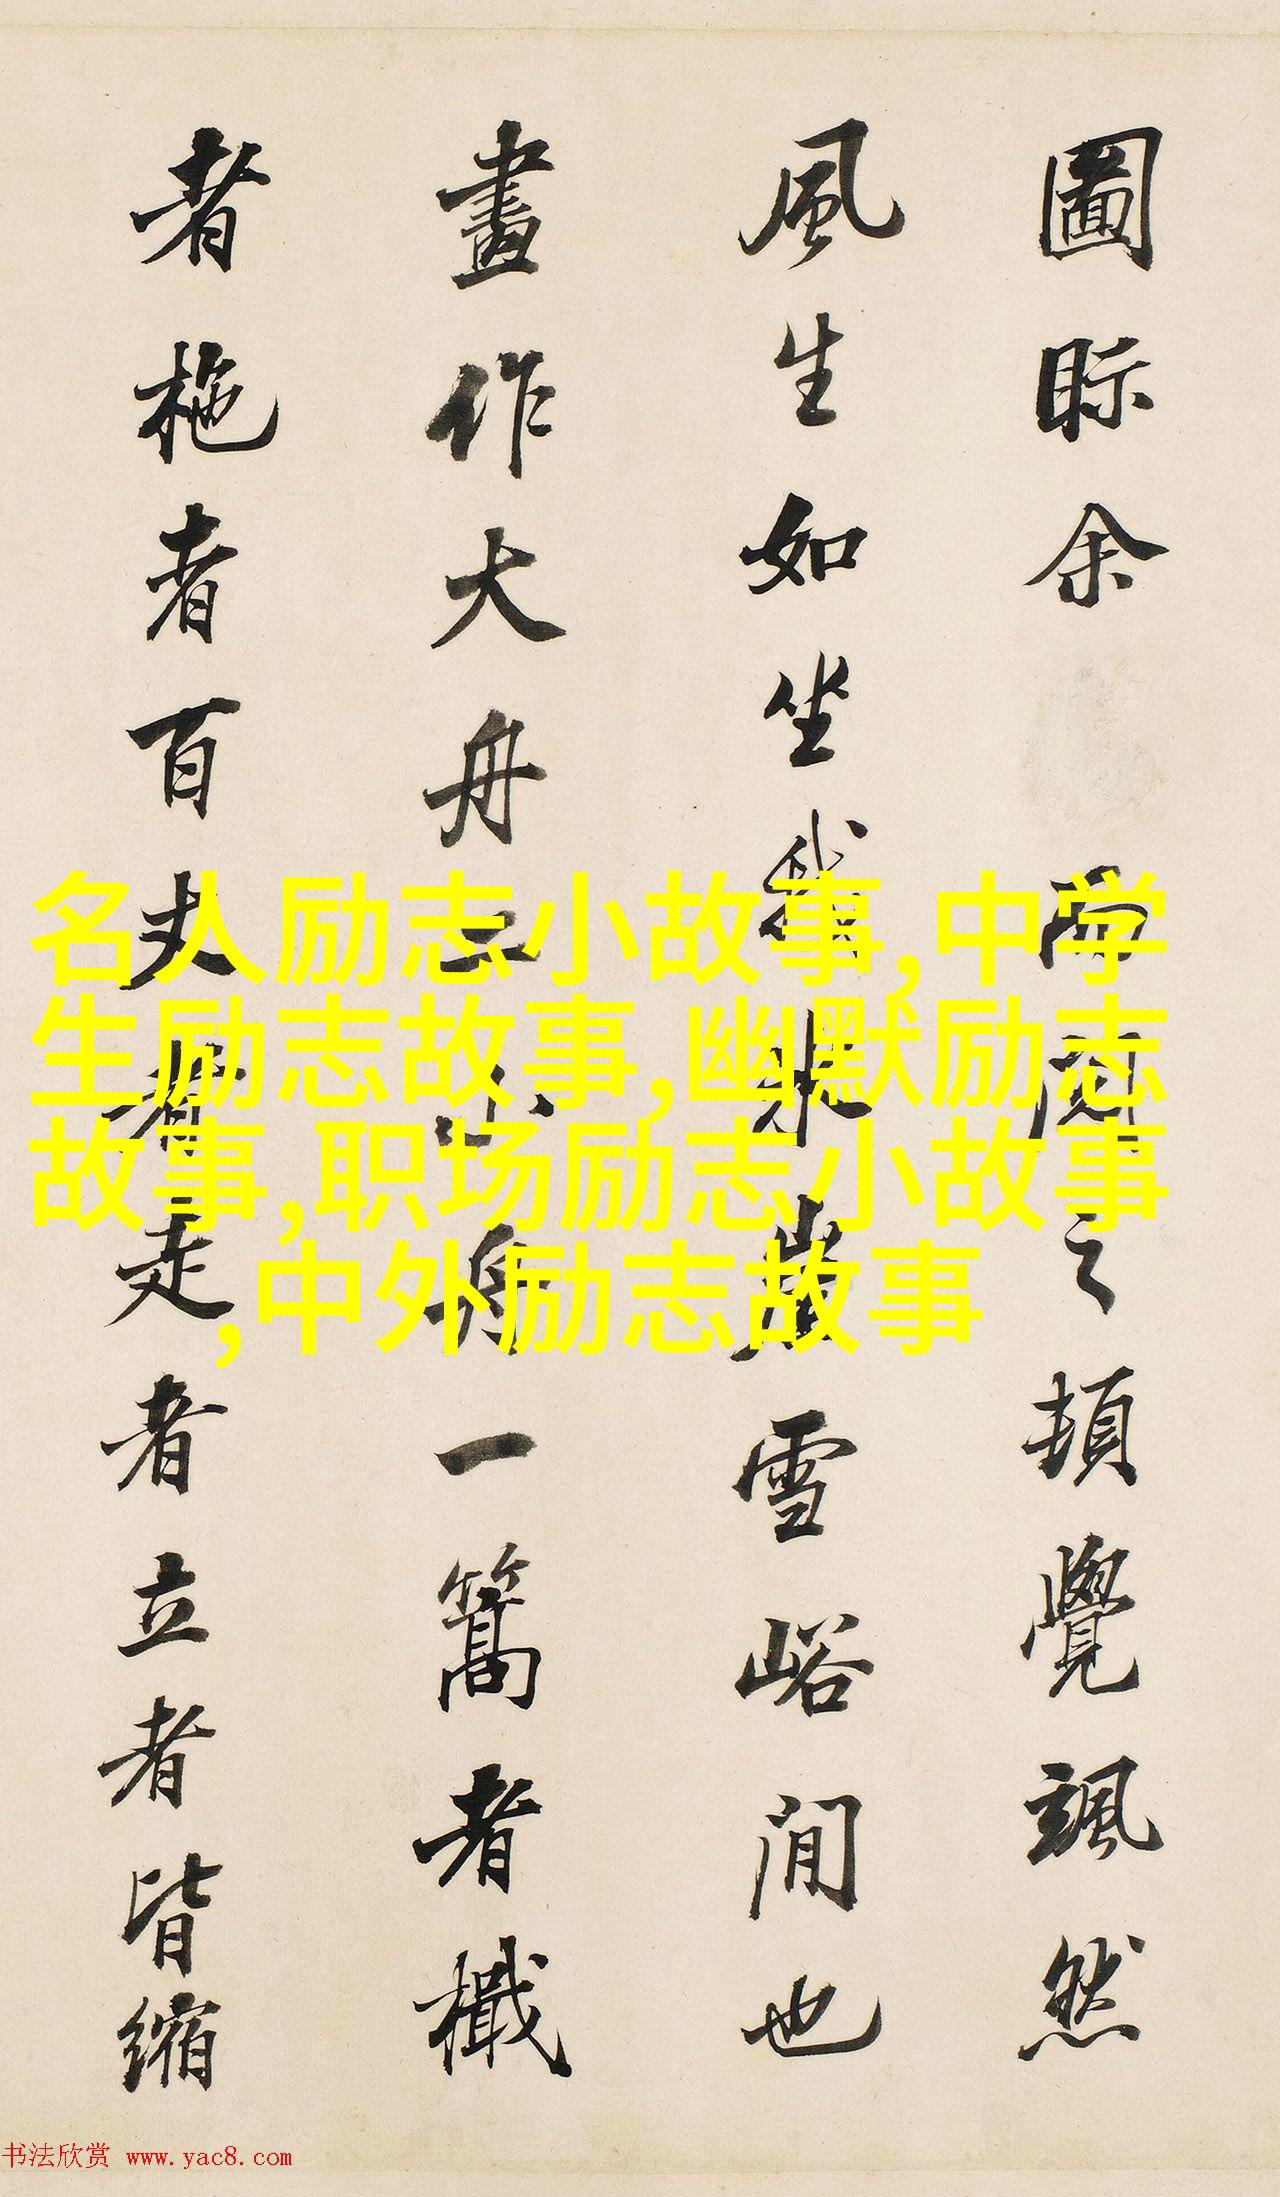 圖眎余閱之頓覺颯然
風生如坐我冰崖雪峪間也
畫作大舟二小舟一篙者檝
者柂者百丈者走者立者皆縮
名人励志小故事,中学
生励志故事,幽默励志
故事,职场励志小故事
,中外励志故事
书法欣赏 www.yac8.com